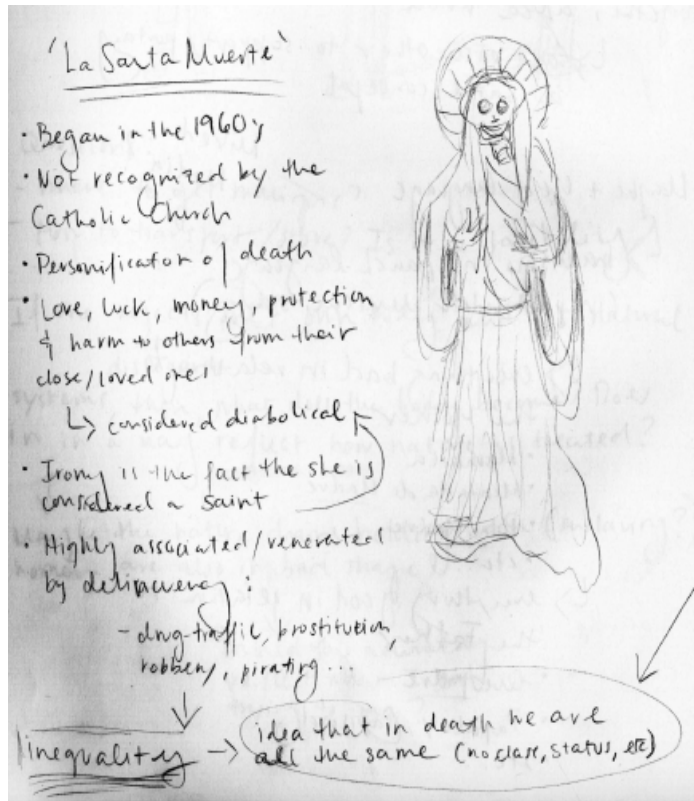 'La Santa Muerte'
• Began in the 1960s
• Not recognized by the
Catholic Church
• Personification of death
• Love, luck, money, protection
& harm to others from their
close/loved ones
↳ considered diabolical
• Irony is the fact the she is
considered a saint
• Highly associated/venerated
by delincuency:
- drug-traffic, prostitution
robbery, pirating...
inequality → idea that in death we are
all the same (no class, status, etc)